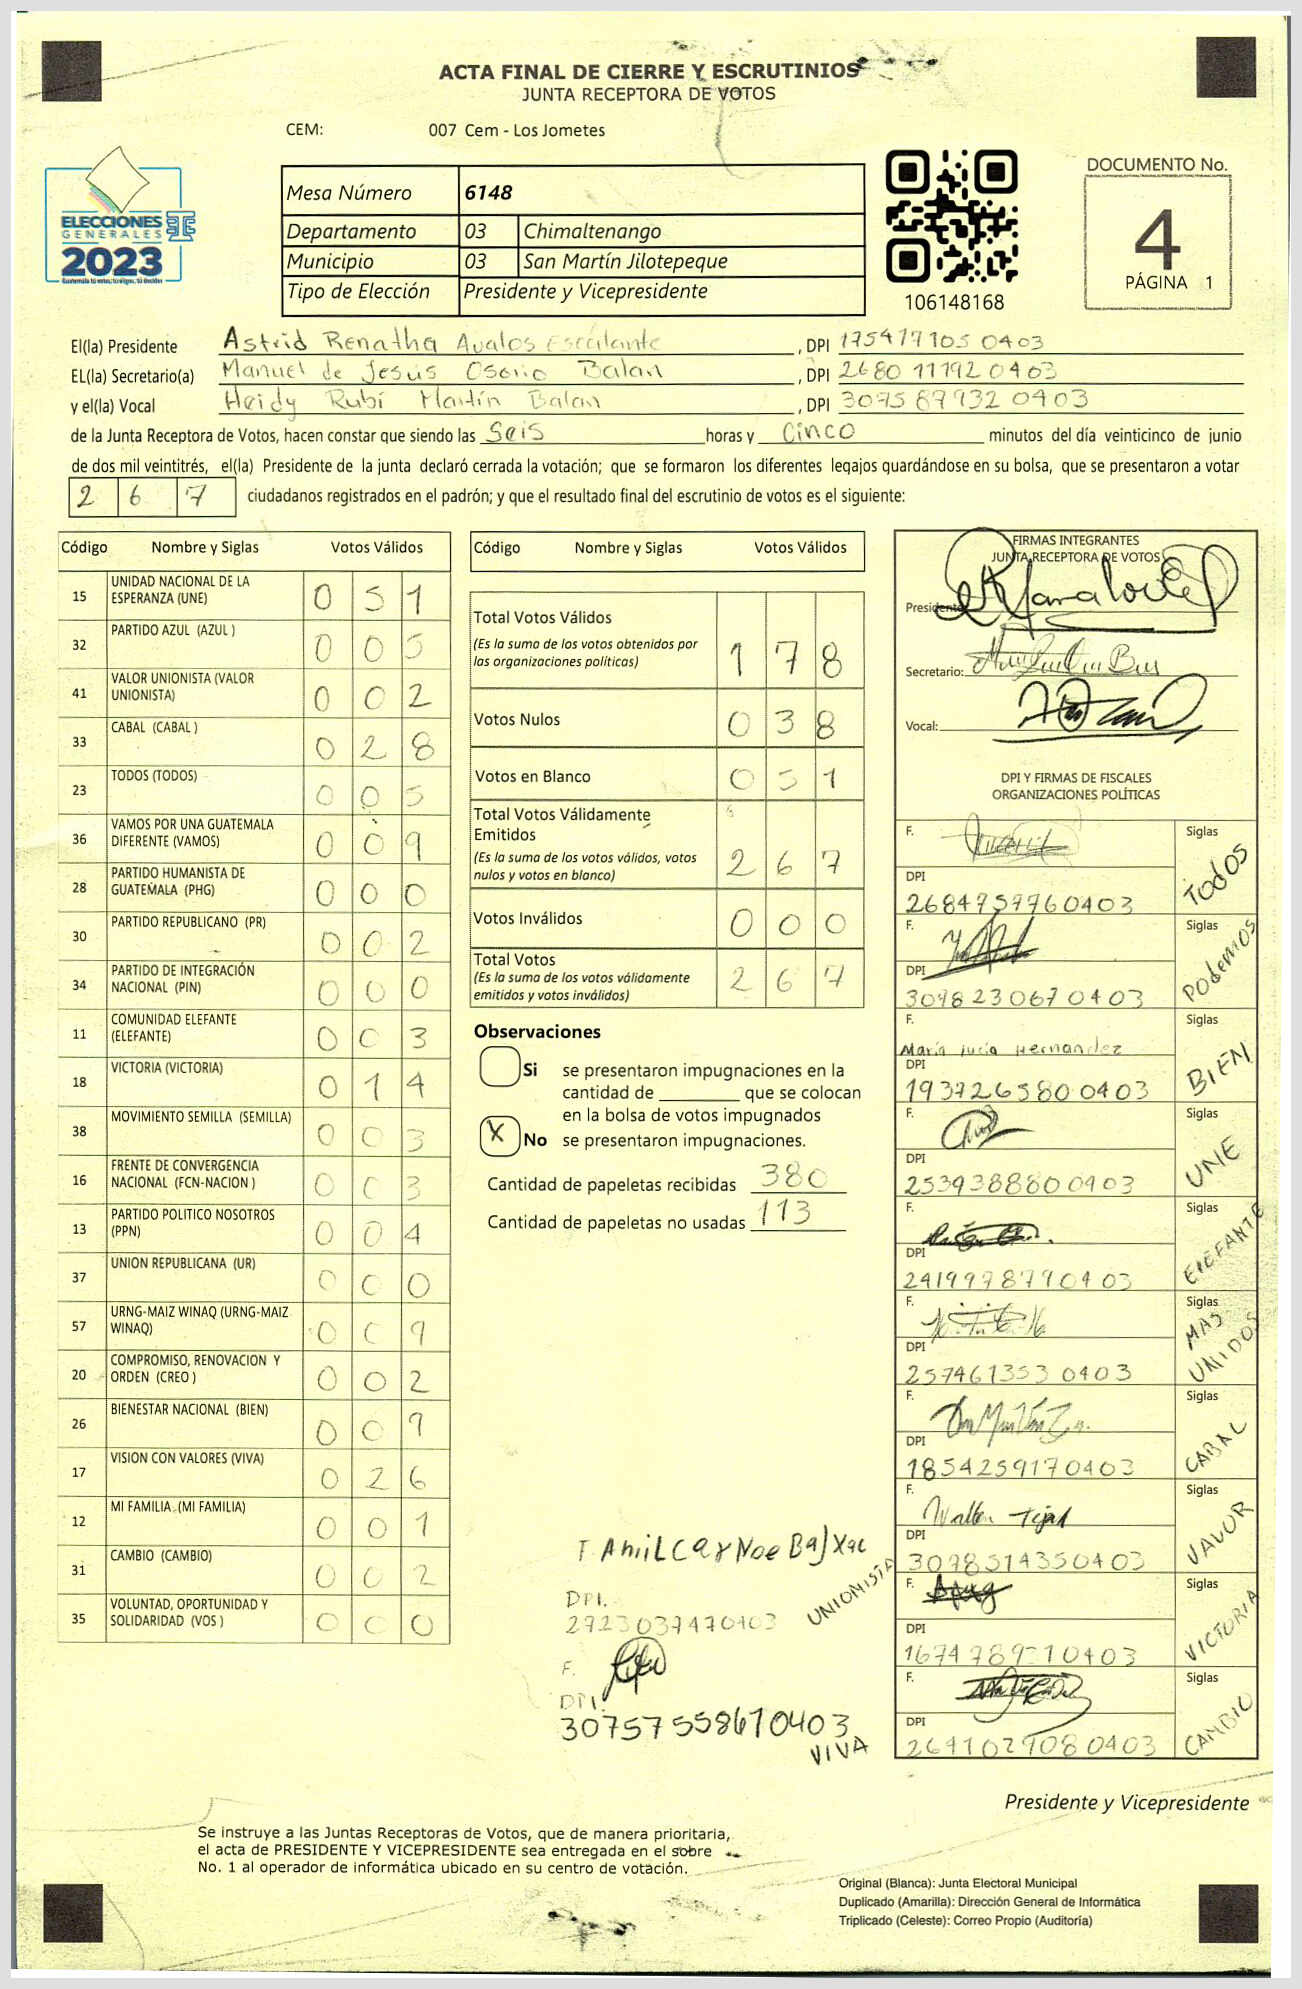 ACTA FINAL DE CIERRE Y ESCRUTINIOS
JUNTA RECEPTORA DE VOTOS
CEM: 007 Cem - Los Jometes
ELECCIONES
GENERALES
2023
Mesa Número 6148
Departamento 03 Chimaltenango
Municipio 03 San Martín Jilotepeque
Tipo de Elección Presidente y Vicepresidente
106148168
DOCUMENTO No.
4
PÁGINA 1
El(la) Presidente Astrid Renatha Avalos Escalante, DPI 175417105 0403
EL(la) Secretario(a) Manuel de Jesús Osorio Balan, DPI 2680 11192 0403
y el(la) Vocal Heidy Rubí Martín Balan, DPI 3075 87932 0403
de la Junta Receptora de Votos, hacen constar que siendo las Seis horas y Cinco minutos del día veinticinco de junio
de dos mil veintitrés, el(la) Presidente de la junta declaró cerrada la votación; que se formaron los diferentes legajos guardándose en su bolsa, que se presentaron a votar
267 ciudadanos registrados en el padrón; y que el resultado final del escrutinio de votos es el siguiente:
Código Nombre y Siglas Votos Válidos
15 UNIDAD NACIONAL DE LA ESPERANZA (UNE) 051
32 PARTIDO AZUL (AZUL ) 005
41 VALOR UNIONISTA (VALOR UNIONISTA) 002
33 CABAL (CABAL ) 028
23 TODOS (TODOS) 005
36 VAMOS POR UNA GUATEMALA DIFERENTE (VAMOS) 009
28 PARTIDO HUMANISTA DE GUATEMALA (PHG) 000
30 PARTIDO REPUBLICANO (PR) 002
34 PARTIDO DE INTEGRACIÓN NACIONAL (PIN) 000
11 COMUNIDAD ELEFANTE (ELEFANTE) 003
18 VICTORIA (VICTORIA) 014
38 MOVIMIENTO SEMILLA (SEMILLA) 003
16 FRENTE DE CONVERGENCIA NACIONAL (FCN-NACION ) 003
13 PARTIDO POLITICO NOSOTROS (PPN) 004
37 UNION REPUBLICANA (UR) 000
57 URNG-MAIZ WINAQ (URNG-MAIZ WINAQ) 009
20 COMPROMISO, RENOVACION Y ORDEN (CREO ) 002
26 BIENESTAR NACIONAL (BIEN) 009
17 VISION CON VALORES (VIVA) 026
12 MI FAMILIA (MI FAMILIA) 001
31 CAMBIO (CAMBIO) 002
35 VOLUNTAD, OPORTUNIDAD Y SOLIDARIDAD (VOS ) 000
Código Nombre y Siglas Votos Válidos
Total Votos Válidos 178
(Es la suma de los votos obtenidos por
las organizaciones políticas)
Votos Nulos 038
Votos en Blanco 051
Total Votos Válidamente
Emitidos 267
(Es la suma de los votos válidos, votos
nulos y votos en blanco)
Votos Inválidos 000
Total Votos 267
(Es la suma de los votos válidamente
emitidos y votos inválidos)
Observaciones
Si se presentaron impugnaciones en la
cantidad de ________ que se colocan
en la bolsa de votos impugnados
X No se presentaron impugnaciones.
Cantidad de papeletas recibidas 380
Cantidad de papeletas no usadas 113
DPI.
2923037470403
UNIONISTA
F.
DPI.
307575558670403
VIVA
FIRMAS INTEGRANTES
JUNTA RECEPTORA DE VOTOS
Presidente:
Secretario:
Vocal:
DPI Y FIRMAS DE FISCALES
ORGANIZACIONES POLÍTICAS
F. Siglas TODOS
DPI
2684757760403
F. Siglas PODEMOS
DPI
3098230670403
F. Siglas BIEN
María lucia Hernandez
DPI
1937265800403
F. Siglas UNE
DPI
2539388800903
F. Siglas ElEFANTE
DPI
2419998790403
F. Siglas MAS UNIDOS
DPI
257461353 0403
F. Siglas CABAL
DPI
1854259170403
F. Siglas VALOR
DPI
3098514350403
F. Siglas VICTORIA
DPI
F. Siglas CAMBIO
DPI
2691029080403
Presidente y Vicepresidente
Se instruye a las Juntas Receptoras de Votos, que de manera prioritaria,
el acta de PRESIDENTE Y VICEPRESIDENTE sea entregada en el sobre
No. 1 al operador de informática ubicado en su centro de votación.
Original (Blanca): Junta Electoral Municipal
Duplicado (Amarilla): Dirección General de Informática
Triplicado (Celeste): Correo Propio (Auditoría)